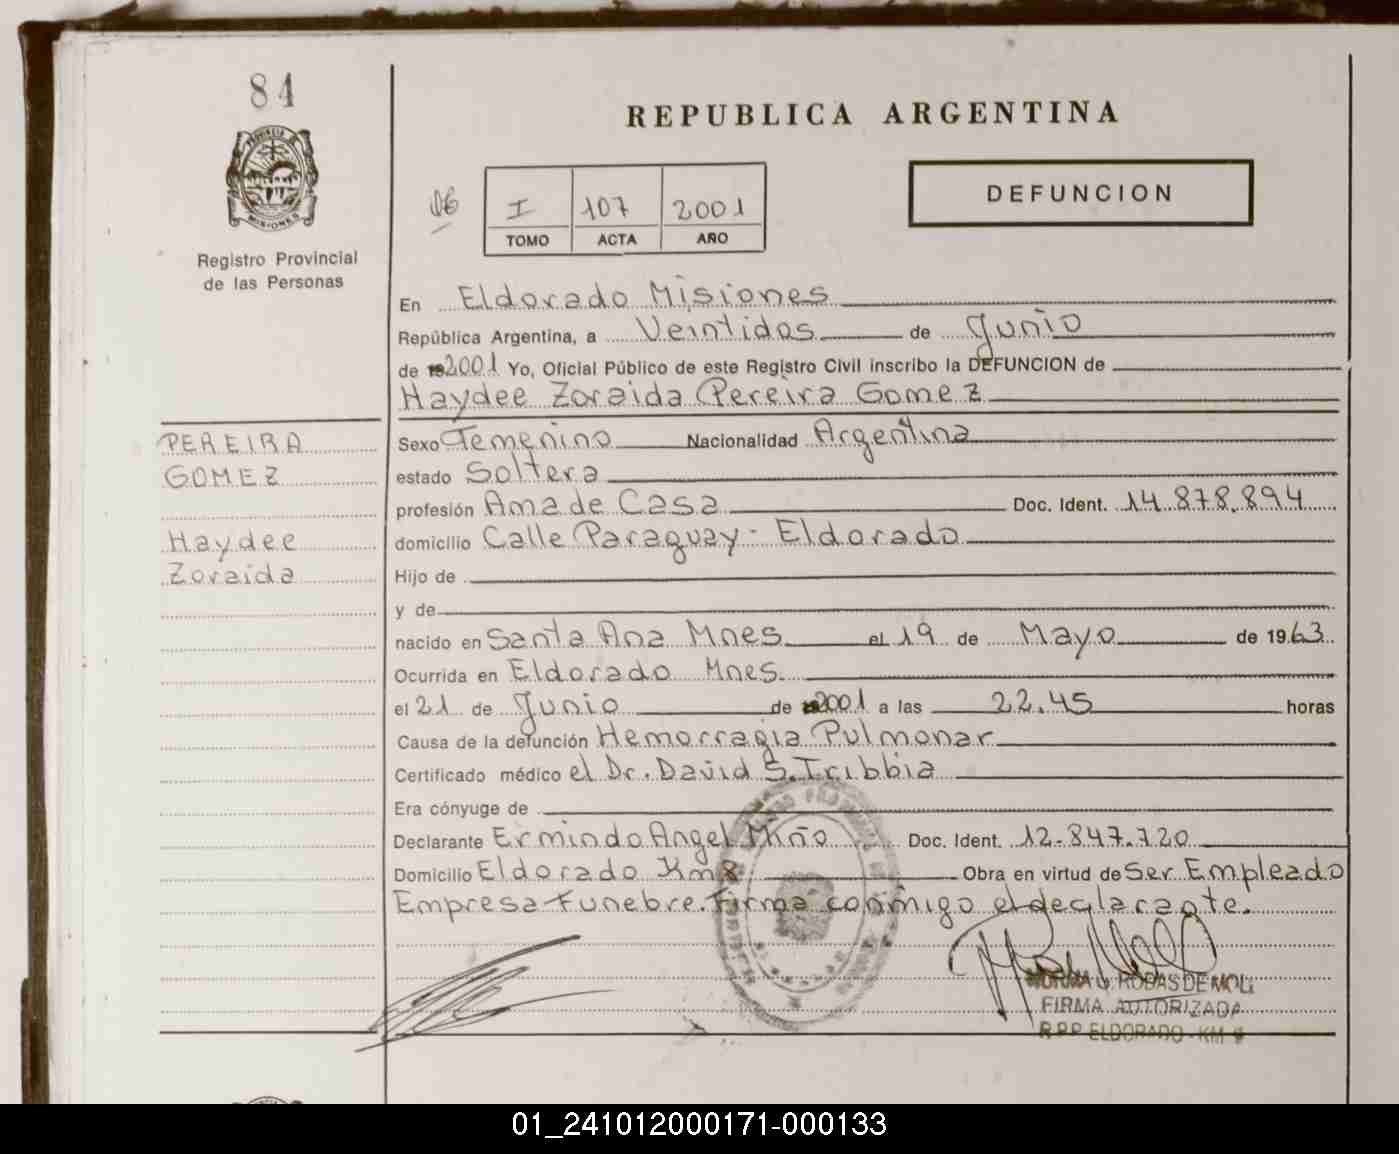 84
REPUBLICA ARGENTINA
PROVINCIA DE MISIONES
Registro Provincial
de las Personas
DEFUNCION
I 107 2001
TOMO ACTA AÑO
En Eldorado Misiones
República Argentina, a Veintidos de Junio
de 2001 Yo, Oficial Público de este Registro Civil inscribo la DEFUNCION de
Haydee Zoraida Pereira Gomez
PEREIRA
GOMEZ
Haydee
Zoraida
Sexo Femenino Nacionalidad Argentina
estado Soltera
profesión Ama de Casa Doc. Ident. 14.878.894
domicilio Calle Paraguay - Eldorado
Hijo de
y de
nacido en Santa Ana Mnes el 19 de Mayo de 1963
Ocurrida en Eldorado Mnes.
el 21 de Junio de 2001 a las 22.45 horas
Causa de la defunción Hemorragia Pulmonar
Certificado médico el Dr. David S. Tribbia
Era cónyuge de
Declarante Ermindo Angel Miño Doc. Ident. 12.847.720
Domicilio Eldorado Km 8 Obra en virtud de Ser Empleado
Empresa Funebre. Firma conmigo el declarante.
RODAS DE MOLI
FIRMA AUTORIZADA
R.P.P. ELDORADO - KM 9
01_241012000171-000133